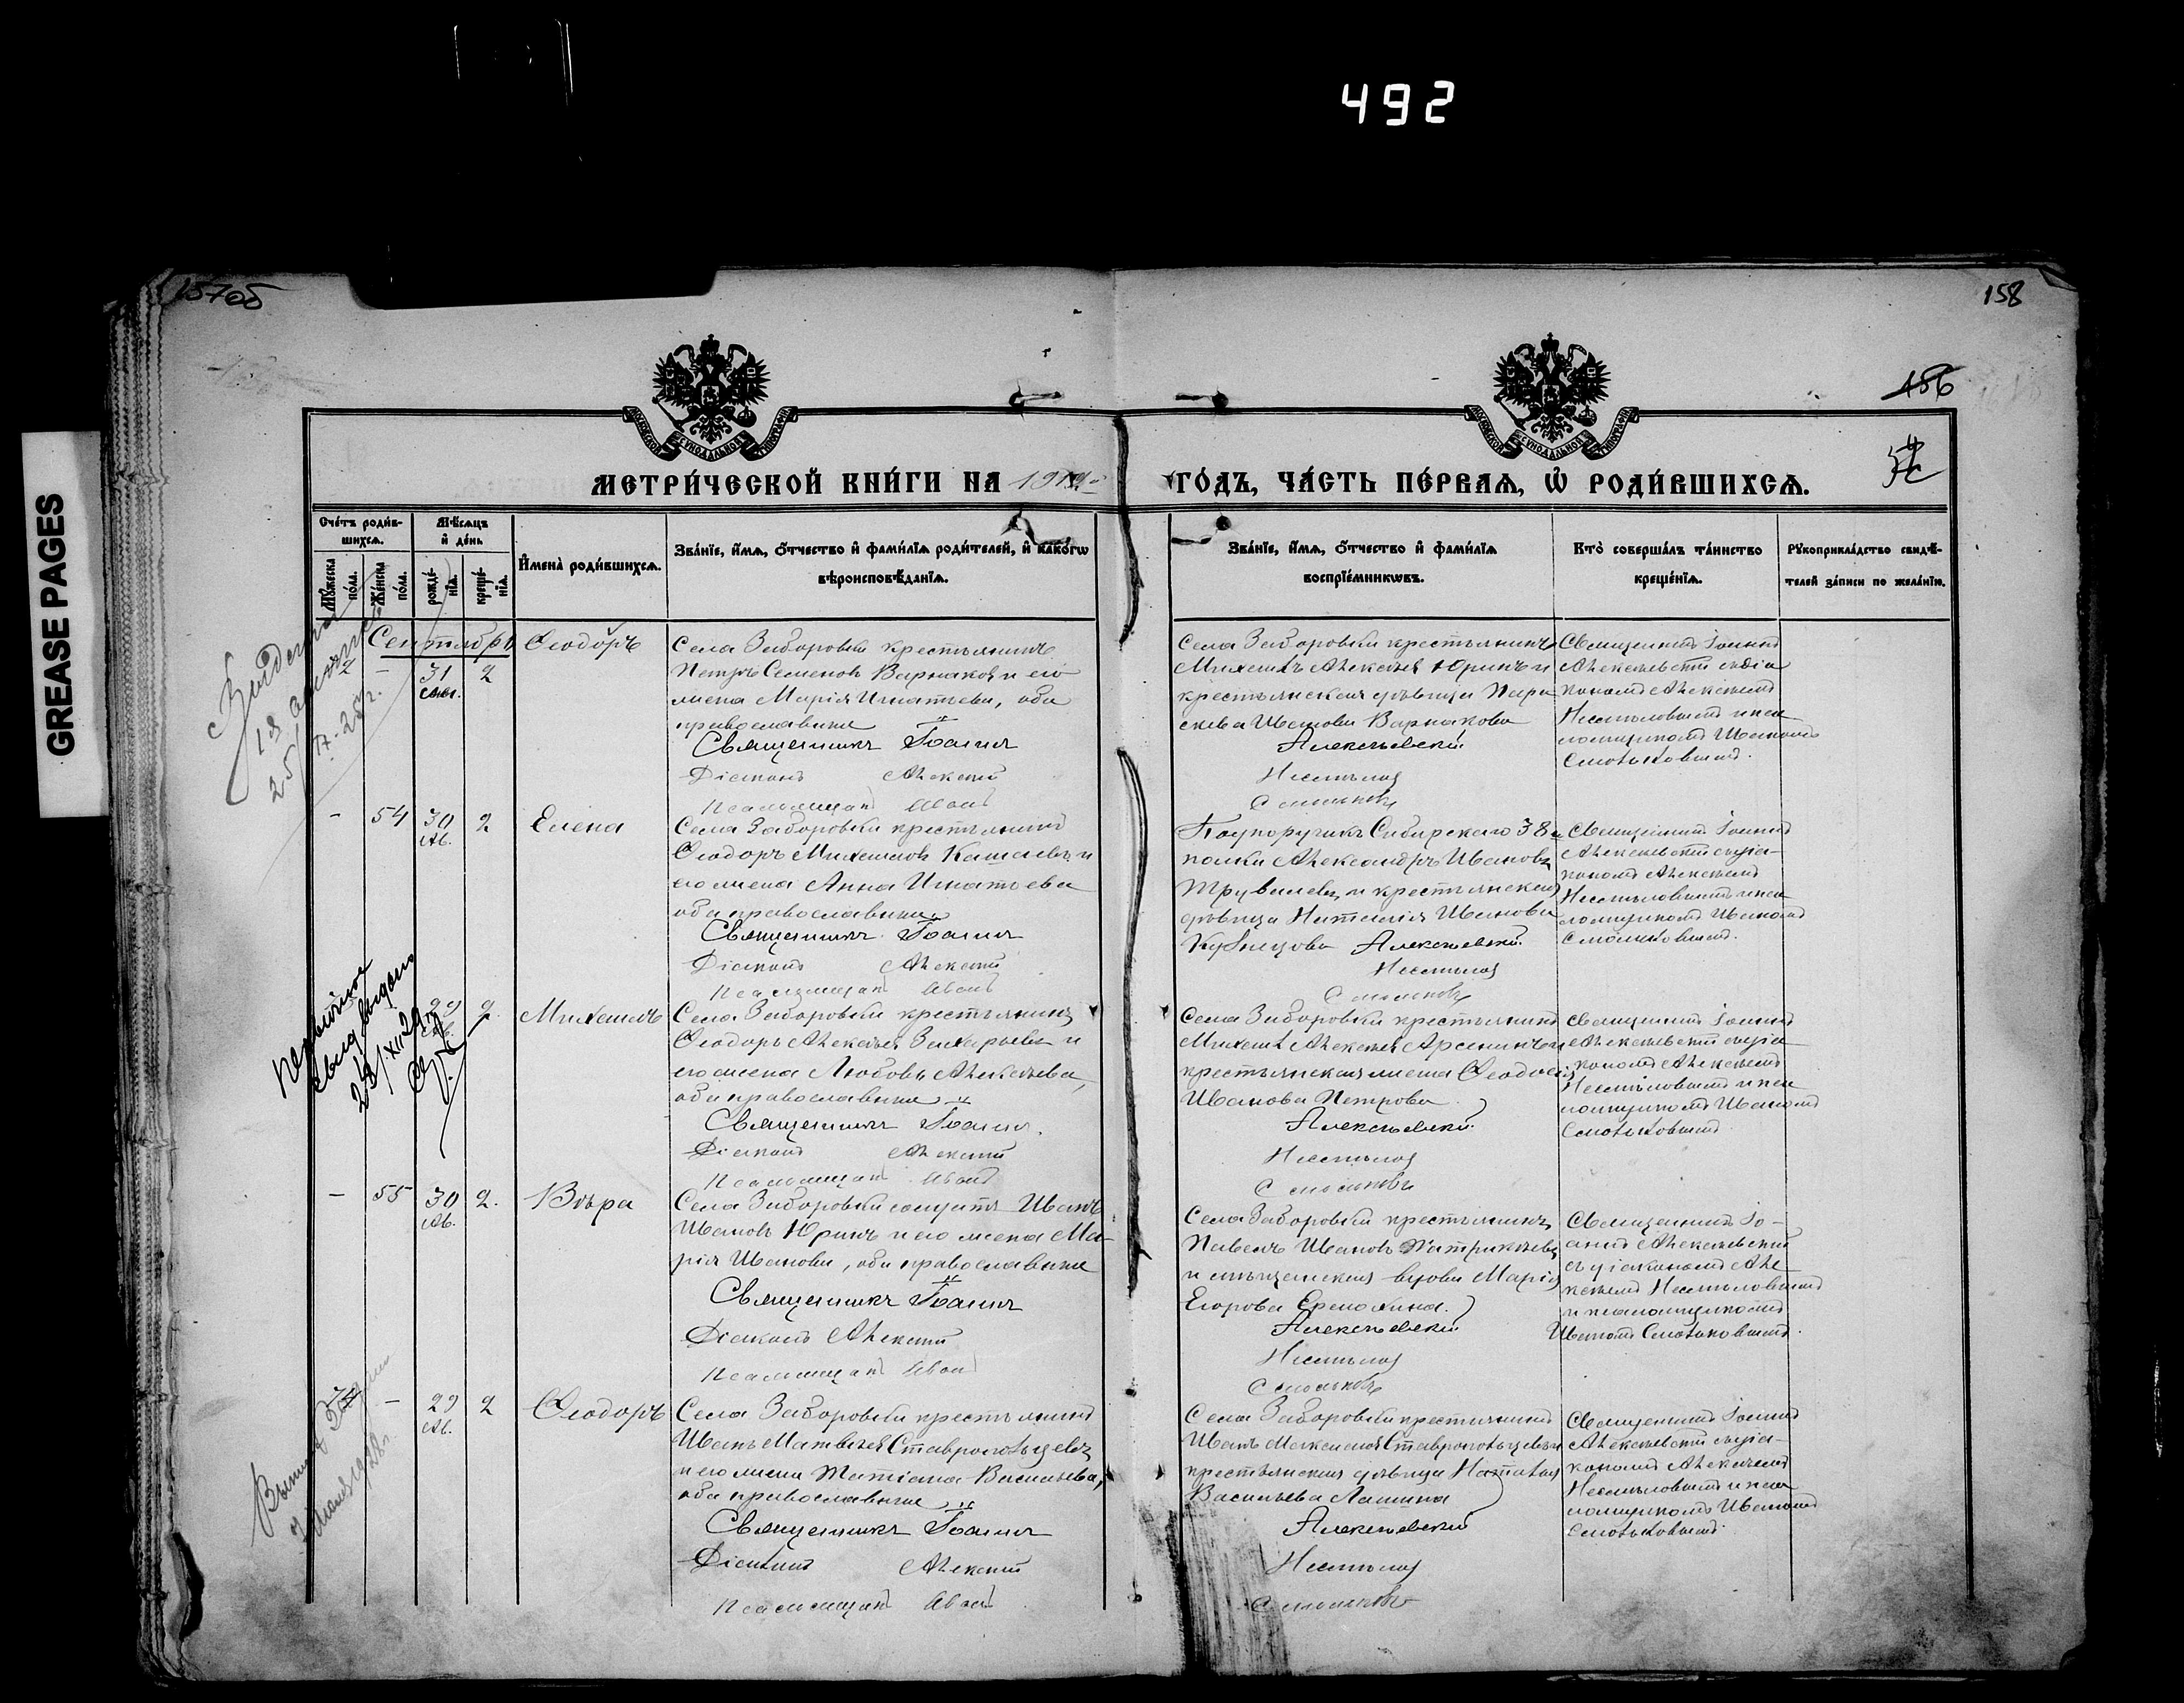 492
GREASE PAGES
157об
158
186
МОСКОВСКОЙ СУНОДАЛЬНОЙ ТИПОГРАФІИ
МОСКОВСКОЙ СУНОДАЛЬНОЙ ТИПОГРАФІИ
МЕТРИ́ЧЕСКОЙ КНИ́ГИ НА 191
ГО́ДЪ, ЧА́СТЬ ПЕ́РВАѦ, Ѡ҆ РОДИ́ВШИХСѦ.
Сче́тъ роди́в-
шихсѧ.
Мѣ́сѧцъ
и҆ де́нь
Мꙋ́жеска по́ла.
Же́нска по́ла.
рожде́-
нїѧ.
креще́-
нїѧ.
И҆мена̀ роди́вшихсѧ.
Зва́нїе, и҆́мѧ, ѻ҆́тчество и҆ фами́лїѧ роди́телей, и҆ како́гѡ
вѣроисповѣ́данїѧ.
Зва́нїе, и҆́мѧ, ѻ҆́тчество и҆ фами́лїѧ
воспрїе́мникѡвъ.
Кто̀ соверша́лъ та́инство
креще́нїѧ.
Рꙋкоприкла́дство свидѣ́-
телей за́писи по жела́нїю.
Сентябрь
72 - 31 2 Ѳеодоръ
Села Заборовки крестьянинъ
Петръ Семеновъ Варнаковъ и его
жена Марія Игнатьева, оба
православные
Священникъ Іоаннъ
Діаконъ Алексій
Псаломщикъ Иванъ
Села Заборовки крестьянинъ
Михаилъ Алексѣевъ Юринъ и
крестьянская дѣвица Пара
скева Иванова Варнакова
Алексѣевскій
Несмѣловъ
Смольковъ
Священникъ Іоаннъ
Алексѣевскій съ діа
кономъ Алексѣемъ
Несмѣловымъ и пса
ломщикомъ Иваномъ
Смольковымъ.
- 54 30 2 Елена
Ав.
Села Заборовки крестьянинъ
Ѳеодоръ Михаиловъ и
его жена Анна Игнатьева
оба православные
Священникъ Іоаннъ
Діаконъ Алексій
Псаломщикъ Иванъ
Подпоручикъ Сибирскаго 38
полка Александръ Ивановъ
и крестьянская
дѣвица Наталія Иванова
Кузнецова Алексѣевскій
Несмѣловъ
Смольковъ
Священникъ Іоаннъ
Алексѣевскій съ діа-
кономъ Алексѣемъ
Несмѣловымъ и пса
ломщикомъ Иваномъ
Смольковымъ.
29 2. Михаилъ
Села Заборовки крестьянинъ
Ѳеодоръ Алексѣевъ Захарьевъ и
его жена Любовь Алексѣева,
оба православные
Священникъ Іоаннъ.
Діаконъ Алексій
Псаломщикъ Иванъ
Села Заборовки крестьянинъ
Михаилъ Алексѣевъ Арсенинъ и
крестьянская жена Ѳеодосія
Иванова Петрова
Алексѣевскій
Несмѣловъ
Смольковъ
Священникъ Іоаннъ
Алексѣевскій съ діа-
кономъ Алексѣемъ
Несмѣловымъ и пса
ломщикомъ Иваномъ
Смольковымъ
- 55 30 2. Вѣра
Ав.
Села Заборовки солдатъ Иванъ
Ивановъ Юринъ и его жена Ма-
рія Иванова, оба православные
Священникъ Іоаннъ
Діаконъ Алексій
Псаломщикъ Иванъ
Села Заборовки крестьянинъ
Павелъ Ивановъ Патрикѣевъ
и мѣщанская вдова Марія
Егорова Ермохина.
Алексѣевскій
Несмѣловъ
Смольковъ
Священникъ Іо-
аннъ Алексѣевскій
съ діакономъ Але
ксѣемъ Несмѣловымъ
и псаломщикомъ
Иваномъ Смольковымъ.
74 - 29 2 Ѳеодоръ
Ав.
Села Заборовки крестьянинъ
Иванъ Матвѣевъ Ставропольцевъ
и его жена Татіана Васильева,
оба православные
Священникъ Іоаннъ
Діаконъ Алексій
Псаломщикъ Иванъ
Села Заборовки крестьянинъ
Иванъ Ставропольцевъ и
крестьянская дѣвица Наталья
Васильева Лашина
Алексѣевскій
Несмѣловъ
Смольковъ
Священникъ Іоаннъ
Алексѣевскій съ діа-
кономъ Алексѣемъ
Несмѣловымъ и пса
ломщикомъ Иваномъ
Смольковымъ.